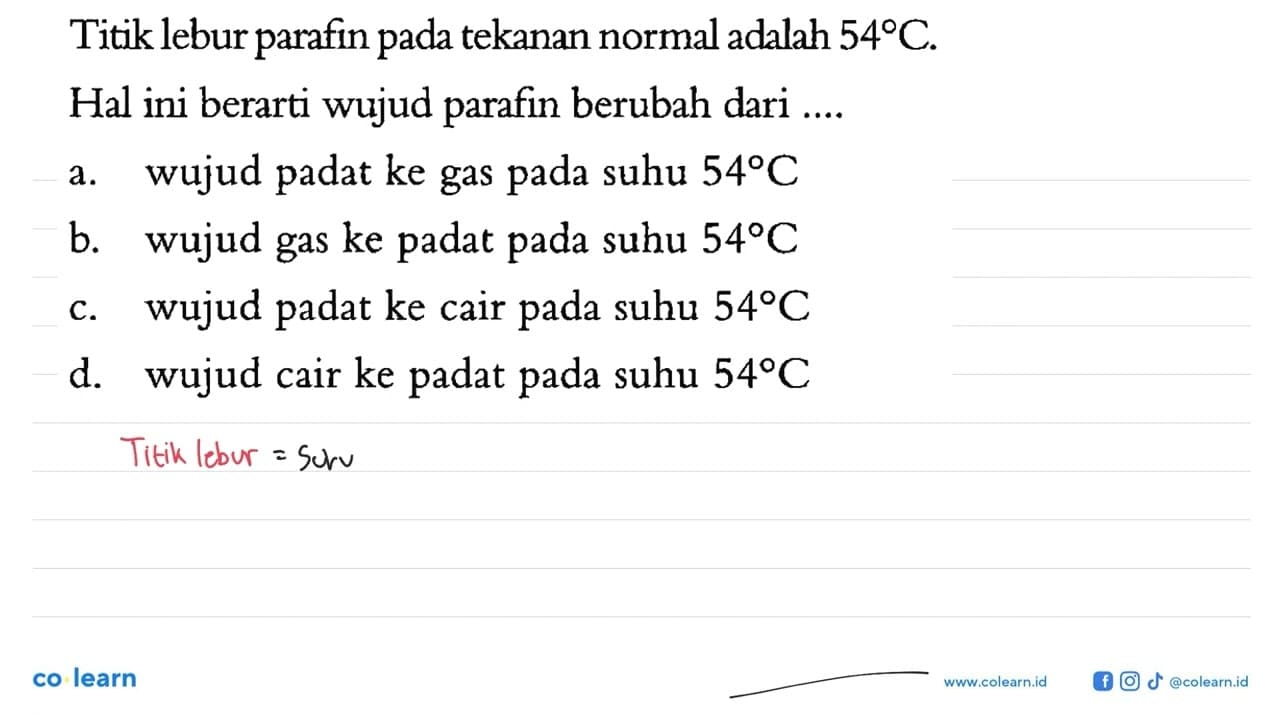 Titik lebur parafin pada tekanan normal adalah 54°C.
Hal ini berarti wujud parafin berubah dari ....
a. wujud padat ke gas pada suhu 54°C
b. wujud gas ke padat pada suhu 54°C
c. wujud padat ke cair pada suhu 54°C
d. wujud cair ke padat pada suhu 54°C
Titik lebur = Suhu
co learn
www.colearn.id
@colearn.id